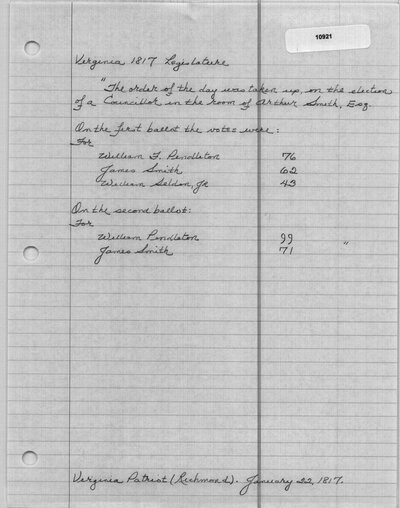 10921
Virginia 1817 Legislature
"The order of the day was taken up, on the election
of a Councillor in the room of Arthur Smith, Esq.
On the first ballot the votes were:
For
William F. Pendleton 76
James Smith 62
William Seldon, Jr 43
On the second ballot:
For
William Pendleton 99
James Smith 71 "
Virginia Patriot (Richmond). January 22, 1817.